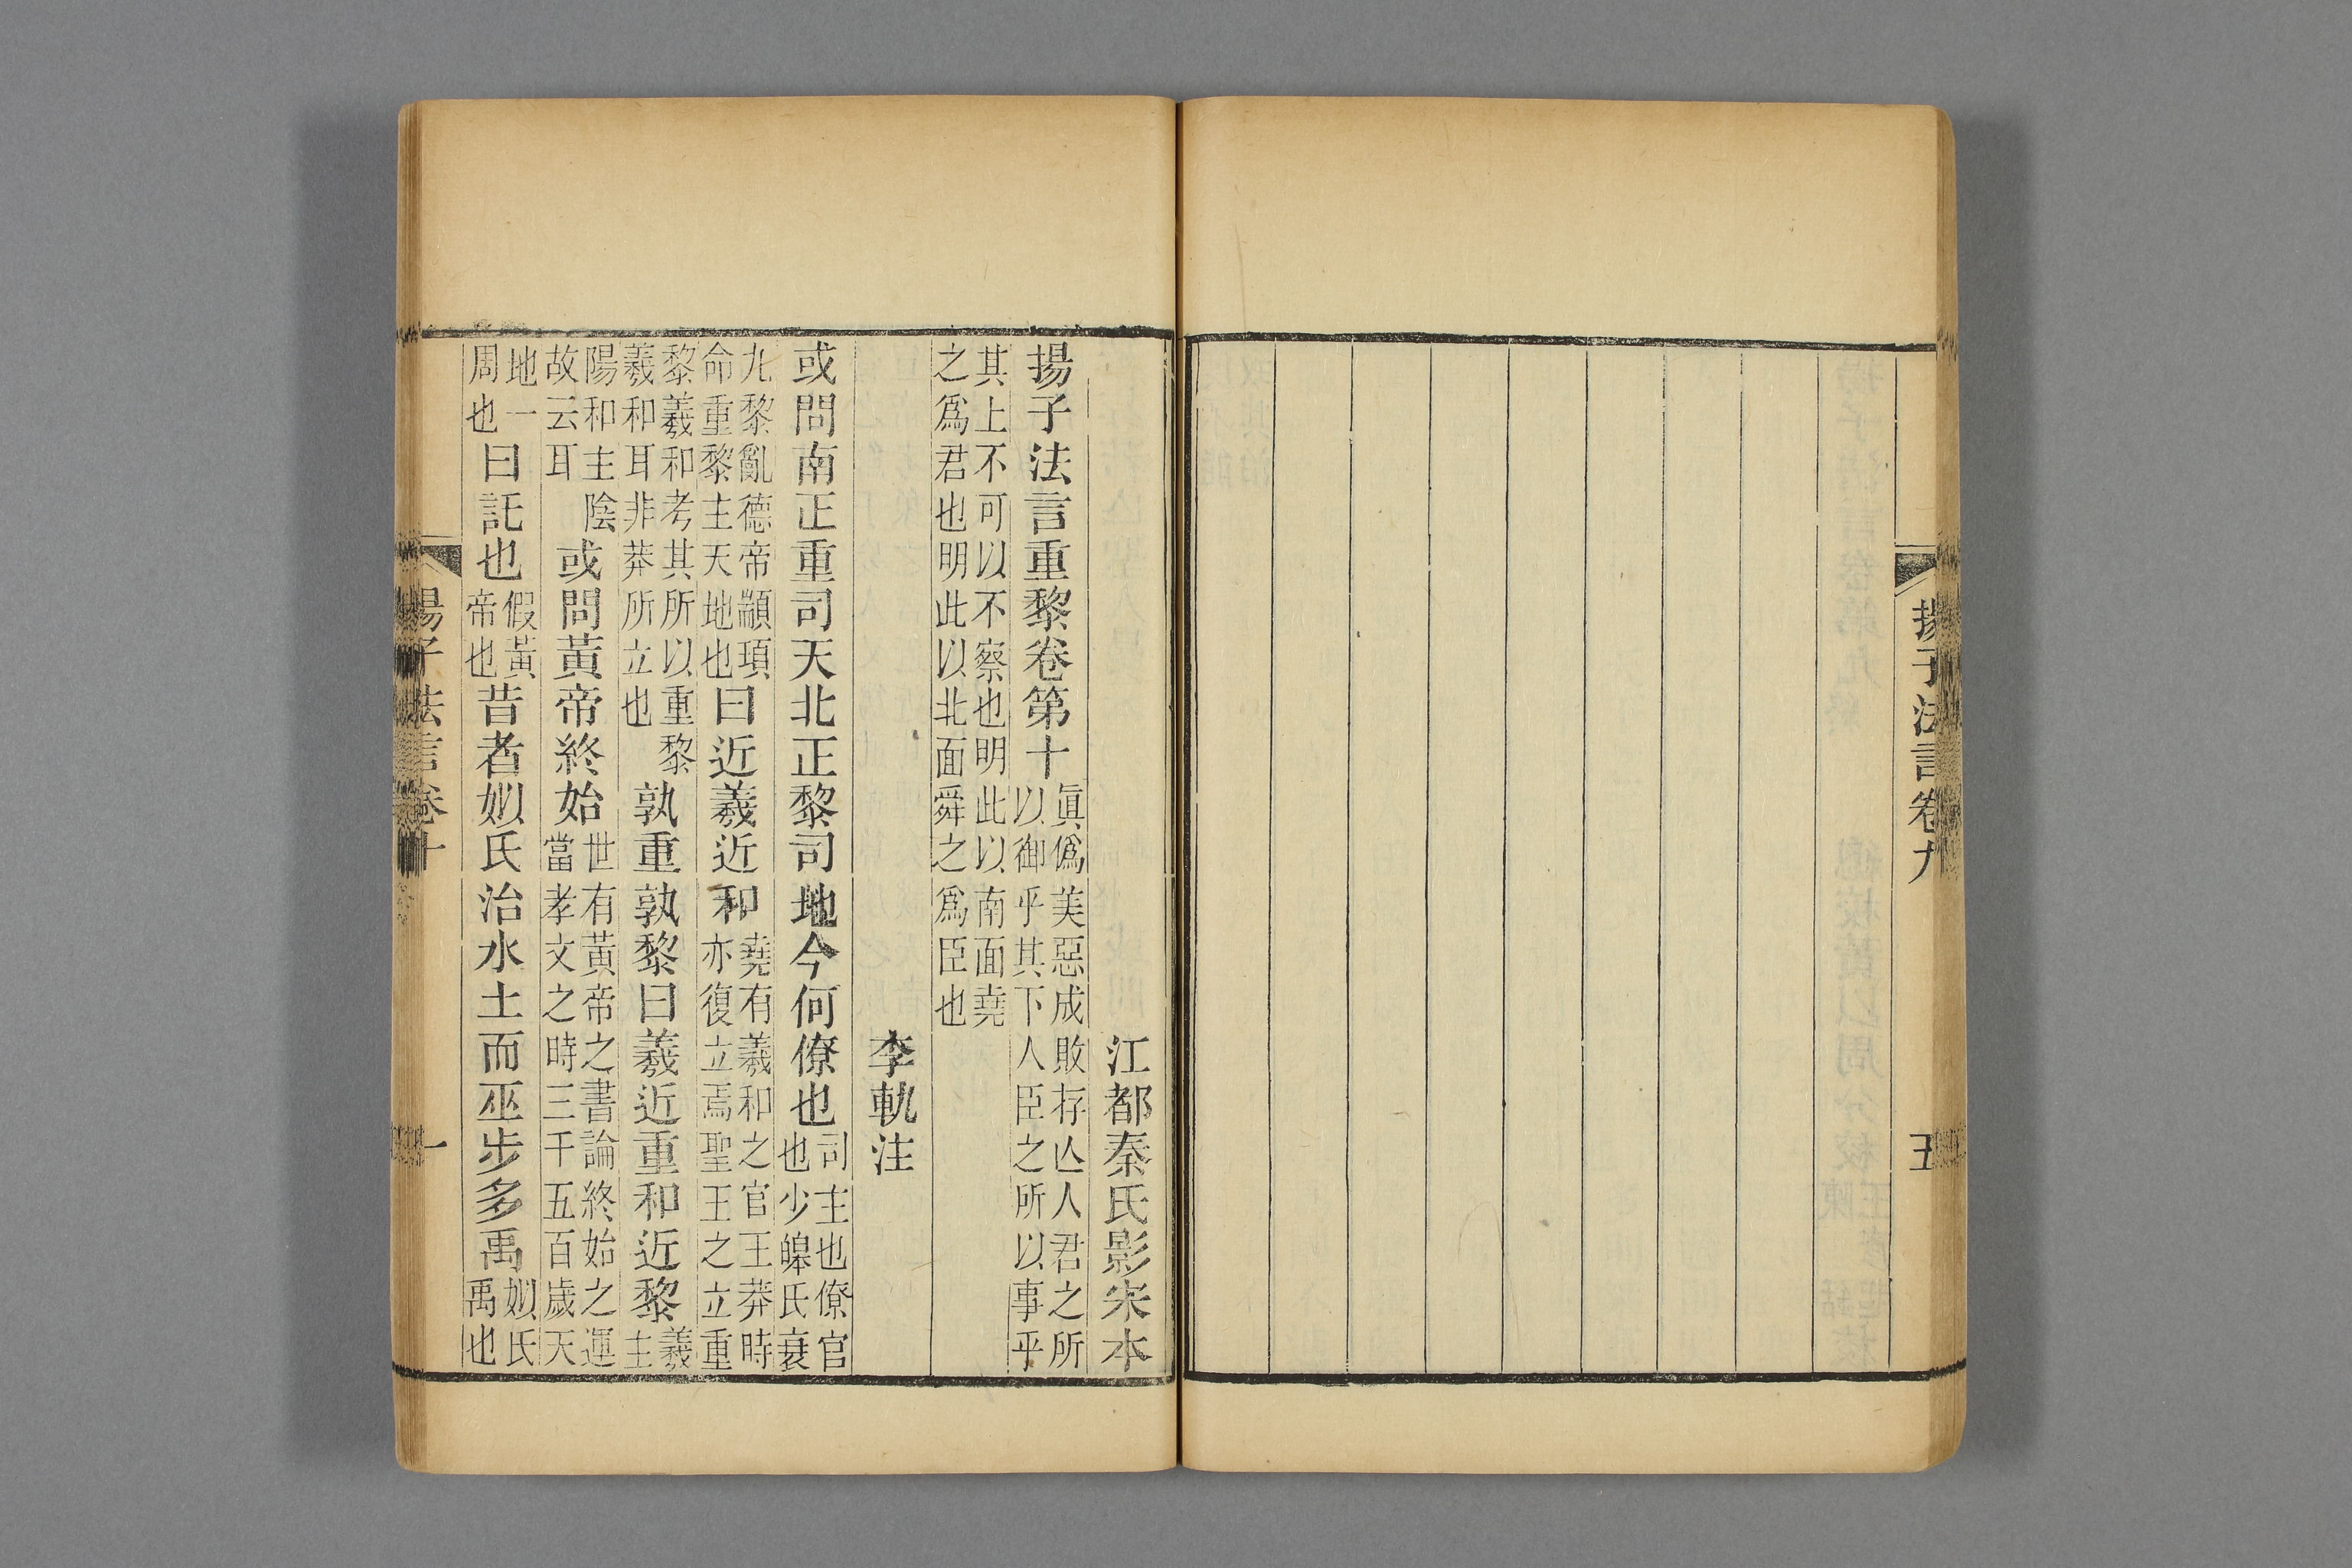 揚子法言卷九
五
江都秦氏影宋本
揚子法言重黎卷第十
眞僞美惡成敗存亾人君之所
以御乎其下人臣之所以事乎
其上不可以不察也明此以南面堯
之爲君也明此以北面舜之爲臣也
李軌注
或問南正重司天北正黎司地今何僚也
司主也僚官
也少皞氏衰
九黎亂德帝顓頊
命重黎主天地也
曰近羲近和
堯有羲和之官王莽時
亦復立焉聖王之立重
黎羲和考其所以重黎
羲和耳非莽所立也
孰重孰黎曰羲近重和近黎
羲
主
陽和主陰
故云耳
或問黃帝終始
世有黃帝之書論終始之運
當孝文之時三千五百歲天
地一
周也
曰託也
假黃
帝也
昔者姒氏治水土而巫步多禹
姒氏
禹也
揚子法言卷十
一